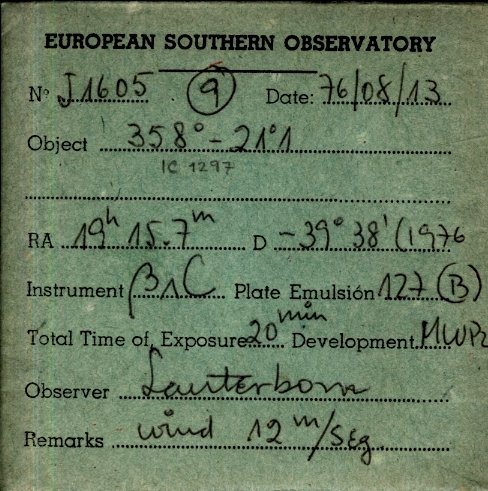 EUROPEAN SOUTHERN OBSERVATORY
Nº J1605 9 Date: 76/08/13
Object 358° - 21°1
IC 1297
RA 19h 15.7m D -39° 38' (1976
Instrument Plate Emulsión 127 (B)
Total Time of Exposure 20 min Development
Observer Lauterborn
Remarks wind 12 m/seg